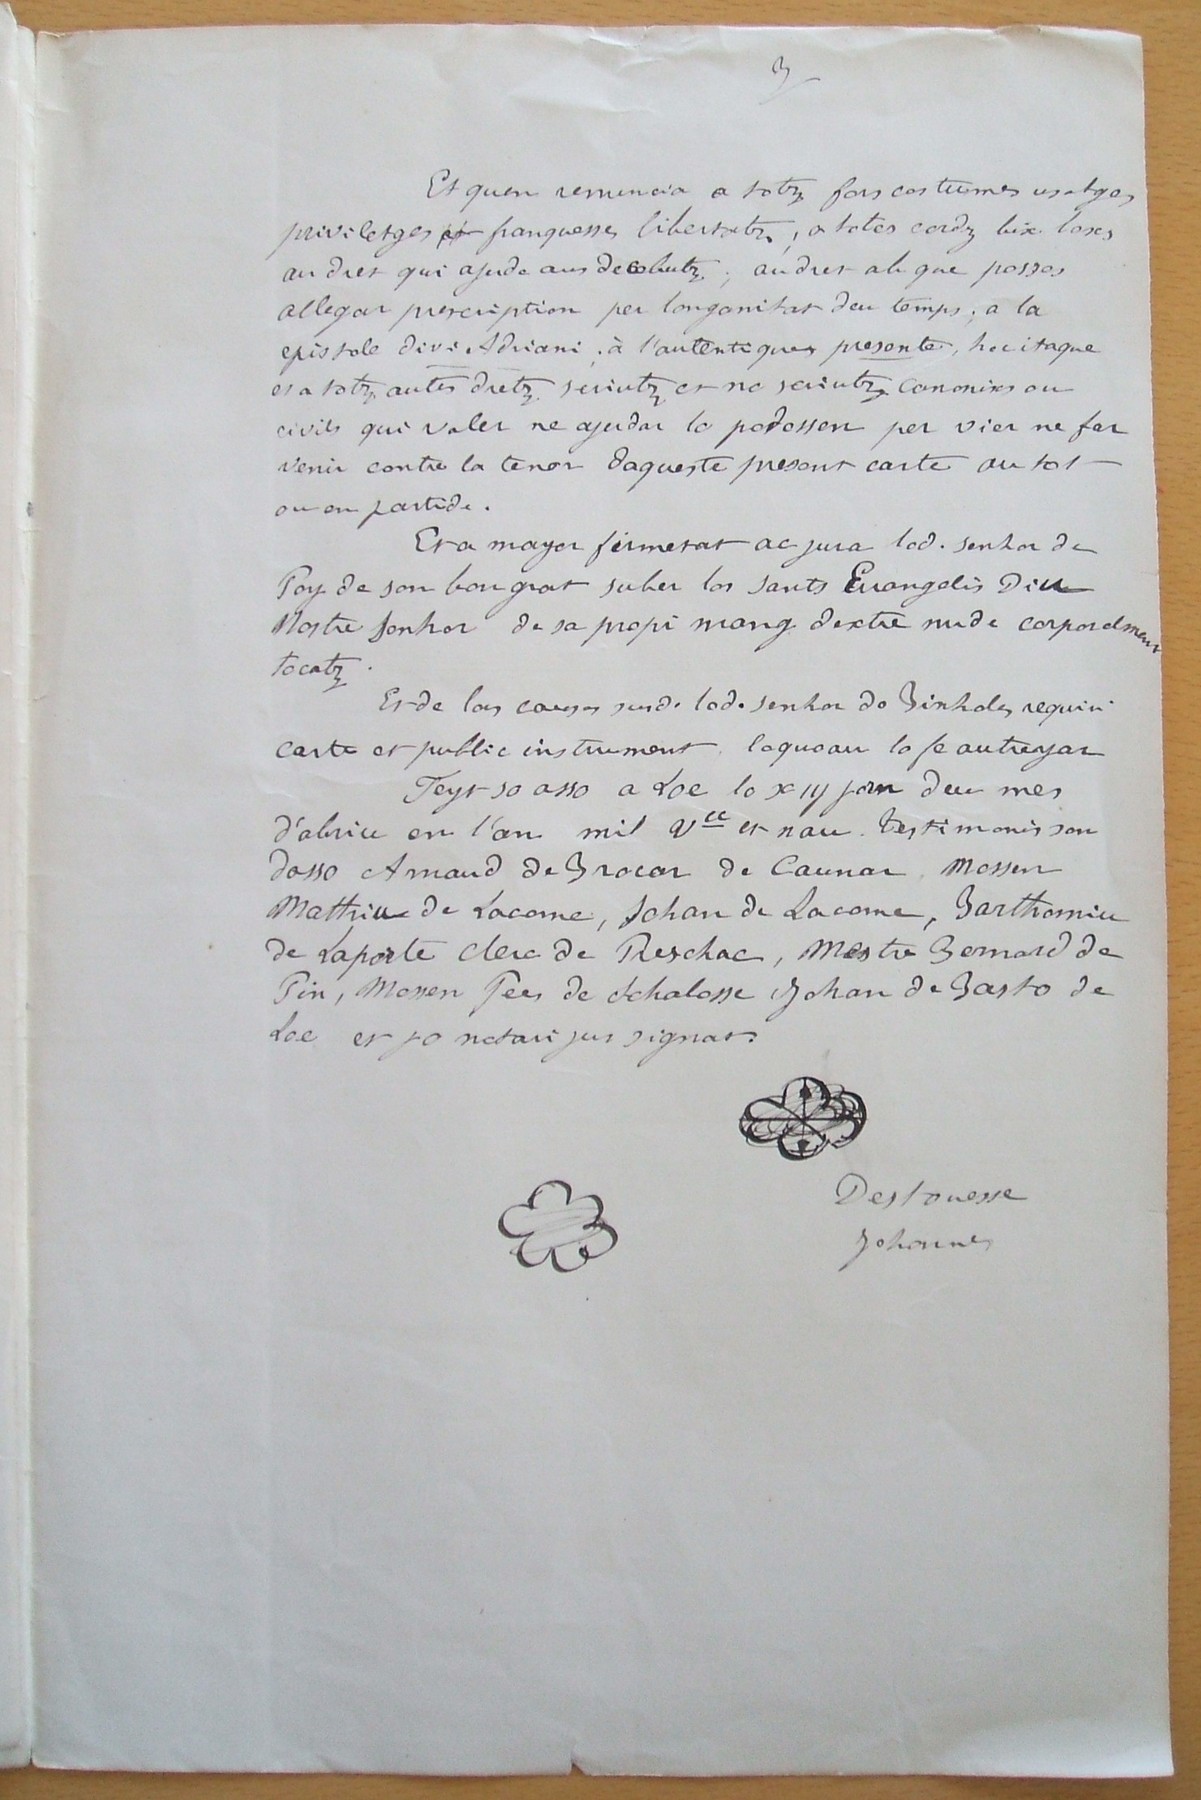 3
Et quen renuncia a totz fors costumes usatges
priviletges et franquesses libertatz, a totes cordz
au dret qui ajude aus decebutz, au dret ab que possos
allegar prescription per longanitat deu temps, a la
epistole divi Adriani, à l'autentiques presente, hoc itaque
et a totz autes dretz scriutz et no scriutz canonixs ou
civils qui valer ne ajudar lo podossen per vier ne far
venir contre la tenor daqueste present carte au tot
ou en partide.
Et a mayor fermetat ac jura lod. senhor de
Poy de son bon grat suber los sants Evangelis Diu
Nostre senhor de sa propi mang dextre nude corporalment
tocatz.
Et de las causes susd. lod. senhor de Binholes requiri
carte et public instrument loquoau lo fe autreyar
Feyt so asso a Loc lo xiij jorn deu mes
d'abriu en l'an mil Vcc et nau. Testimonis son
dosso Arnaud de Brocar de Caunar Mossen
Mathiu de Lacome, Johan de Lacome, Barthomiu
de Laporte clerc de Preschac, Mestre Bernard de
Pin, Mossen Pees de Johan de Basto de
Loc et jo notari jus signat.
Destouesse
Johannes